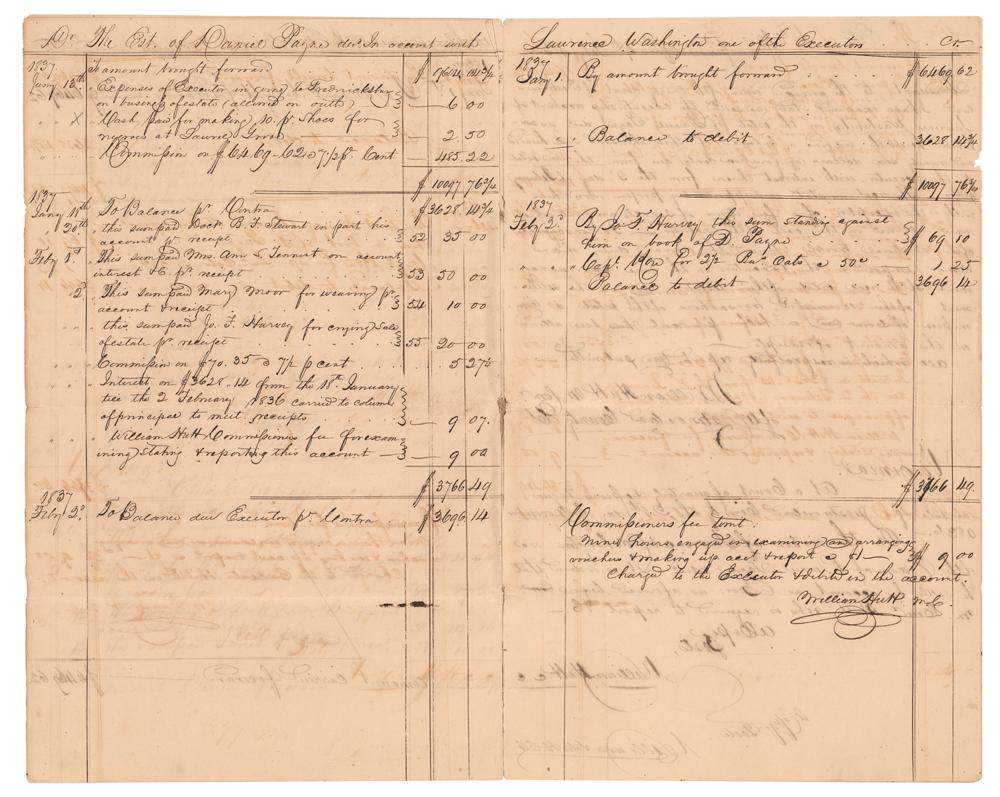 Dr. The Est. of Daniel Payne decd. In account with
1837
Jany 18th To amount brought forward 9604 04 3/4
" Expenses of Executor in going to Fredricksbg
on business of estate (allowed on outh) 6 00
" " X " Cash paid for making 10 pr Shoes for
negroes at Laurel Grove 2 50
" " " Commission on $6469-62 @ 7 1/2 pr. Cent 485.22
$ 10097 76 3/4
1837
Jany 18th To Balance pr Contra $ 3628 14 3/4
20th this sum paid Doct. B. F. Stewart in part his
account pr receipt 52 35 00
Feby 1st " This sum paid Mrs. Ann S. Tennent on account
interest &c pr. receipt 53 50 00
" 2d " This sum paid Mary Moor for weaving pr
account & receipt 54 10 00
" " this sum paid Jo. F. Harvey for crying Sale
of estate pr receipt 55 20 00
" " " Commission on $70.35 @ 7 1/2 p cent 5 27 1/2
" " " Interest on $3628.14 from the 18th January
till the 2 February 1836 carried to column
of principal to meet receipts 9 07.
" " " William Hutt Commissioners fee for exam-
ining stating & reporting this account 9 00
$ 3766 49
1837
Feby 2d To Balance due Executor pr Contra $ 3696.14
Laurence Washington one of the Executors Cr.
1837
Jany 1. By amount brought forward $ 6469 62
" " Balance to debit 3628 14 3/4
$ 10097 76 3/4
1837
Feby 2d By Jo F. Harvey this sum standing against
him on book of D. Payne $ 69 10
" " " Capt. for 2 1/2 Bus. Oats @ 50c 1 25
Balance to debit 3696 14
$ 3766 49.
Commissioners fee tomt:
Nine hours engaged in examining and arranging
vouchers & making up acct & report @ $1 $ 9 00
Charged to the Executor & debited in the account.
William Hutt M.C.